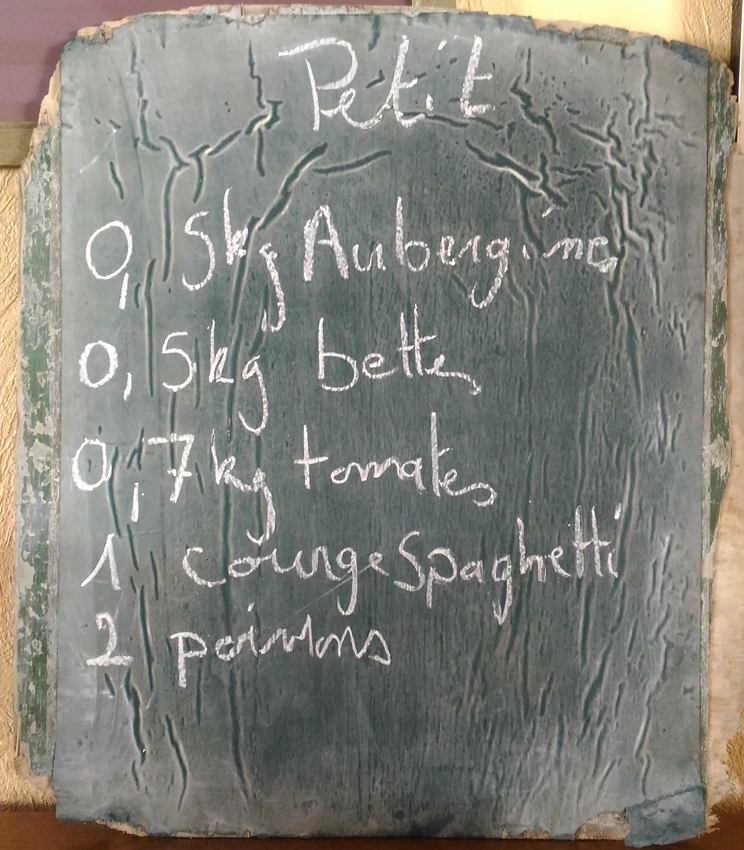 Petit
0,5kg Aubergine
0,5kg bettes
0,7kg tomates
1 courge Spaghetti
2 poivrons